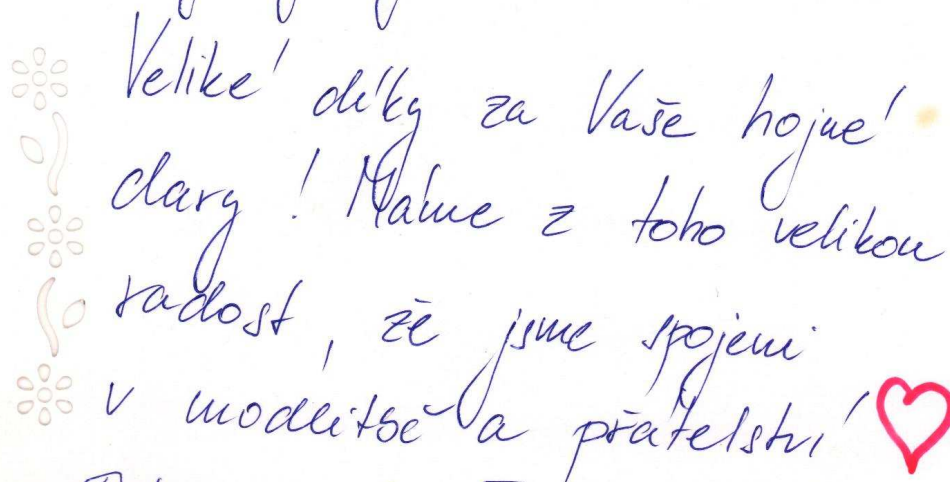 Veliké díky za Vaše hojné
dary! Máme z toho velikou
radost, že jsme spojeni
v modlitbě a přátelství